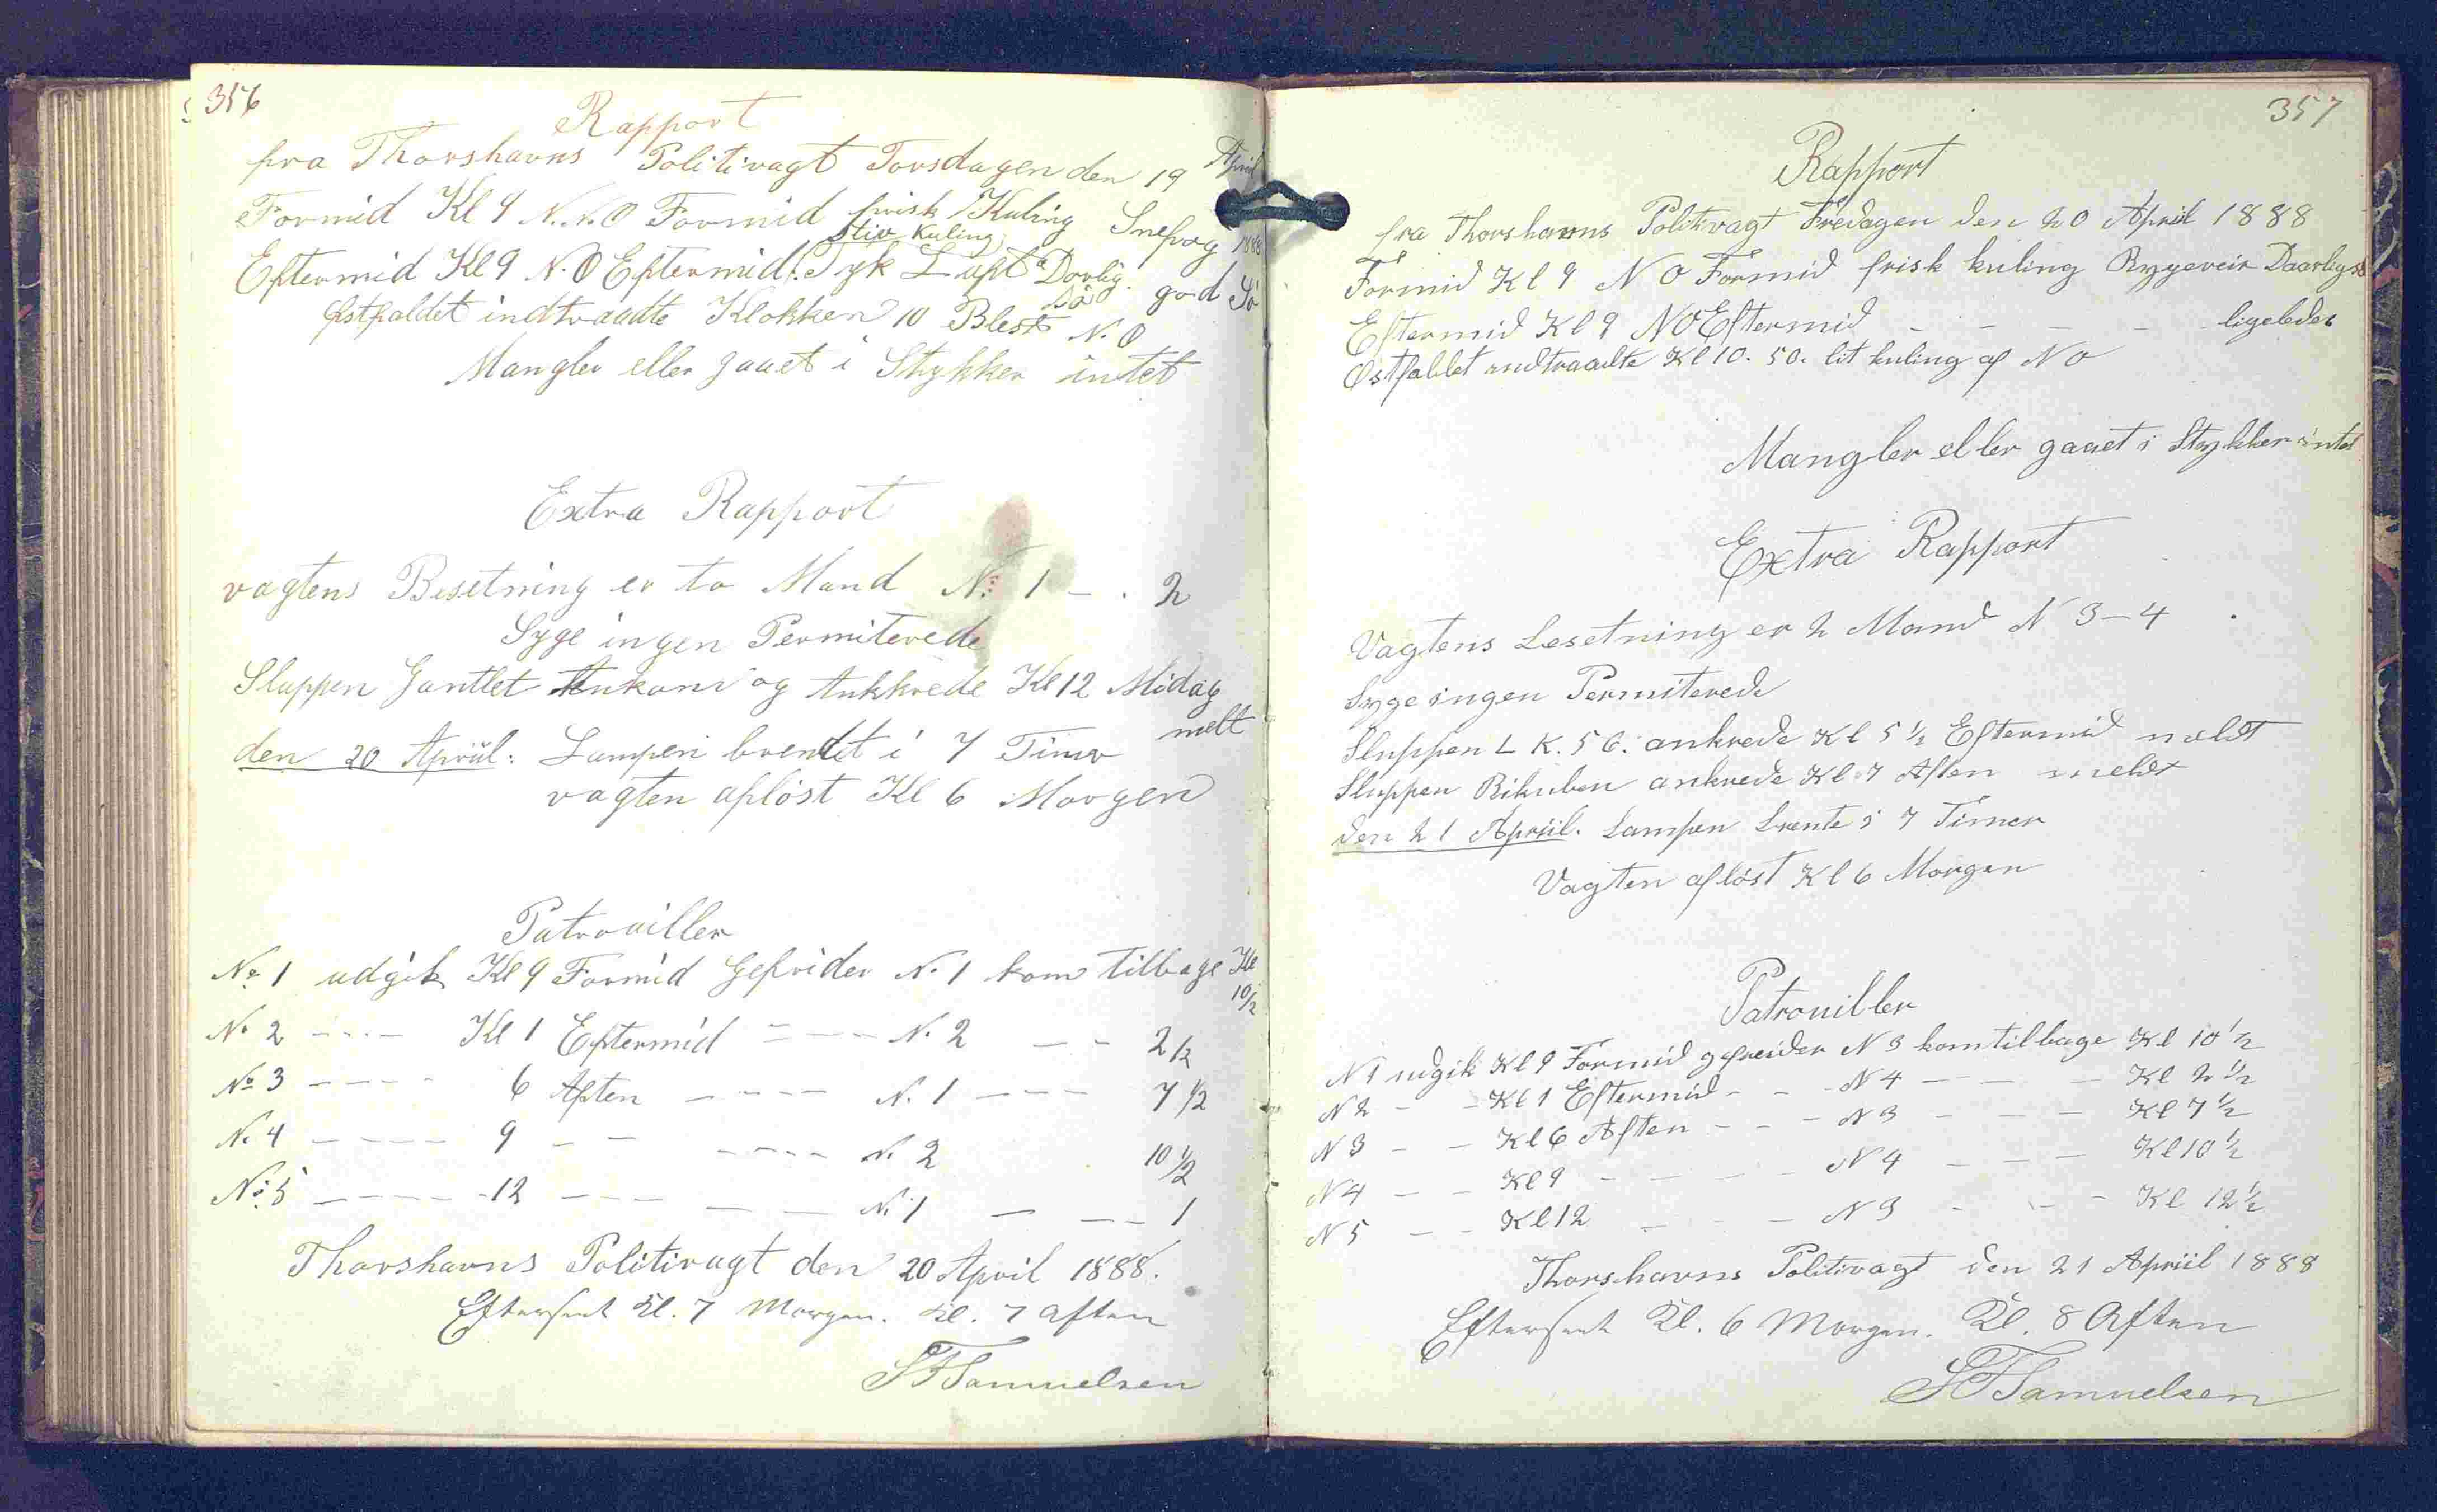 356
Rapport
fra Thorshavns Politivagt Torsdagen den 19 April 1888
Formid Kl 9 N.N.O Formid frisk Kuling Snefog
stiv Kuling
Eftermid Kl 9 N.O Eftermid: Tyk Luft Dorlig. god Sö
Östfaldet indtraadte Klokken 10 Blest N.O
Mangler eller gaaet i Stykker intet
Extra Rapport
vagtens Besetning er to Mand No 1 - . 2
Syge ingen Permiterede
Sluppen Gantlet Ankom og Ankkrede Kl 12 Midag
melt
den 20 Apriil: Lampen brentet i 7 Timer
vagten aflöst Kl 6 Morgen
Patrouiller
No 1 udgik Kl 9 Formid Gefrider N. 1 kom tilbage Kl 10/2
No 2 - - - - Kl 1 Eftermid - - - - N. 2 - - 2/2
No 3 - - - - 6 Aften - - - - N. 1 - - - 7 1/2
N. 4 - - - - 9 - - - - - - N. 2 10 1/2
No: 5 - - - - 12 - - - - - N. 1 - - - 1
Thorshavns Politivagt den 20 April 1888.
Efterseet Kl. 7 Morgen. Kl. 7 Aften
Samuelsen
357
Rapport
fra Thorshavns Politivagt Fredagen den 20 Apriil 1888
Formid Kl 9 N O Formid frisk kuling Bygeveir Daarligsö
Eftermid Kl 9 NO Eftermid - - - - ligeledes
Östfaldet indtraadte Kl 10. 50. lit kuling af N O
Mangler eller gaaet i Stykker intet
Extra Rapport
Vagtens Besetning er 2 Mand N 3-4
Syge ingen Permiterede
Sluppen L K. 56. ankrede Kl 5 1/2 Eftermid meldt
Sluppen Bikuben ankrede Kl 7 Aften meldt
den 21 Apriil. Lampen brente i 7 Timer
Vagten aflöst Kl 6 Morgen
Patrouiller
N 1 udgik Kl 9 Formid gefreider N 3 kom tilbage Kl 10 1/2
N 2 - - Kl 1 Eftermid - - N 4 - - - Kl 2 1/2
N 3 - - Kl 6 Aften - - - N 3 - - - Kl 7 1/2
N 4 - - Kl 9 - - - - N 4 - - - Kl 10 1/2
N 5 - - Kl 12 - - - N 3 - - - Kl 12 1/2
Thorshavns Politivagt den 21 Apriil 1888
Efterseet Kl. 6 Morgen. Kl. 8 Aften
Samuelsen